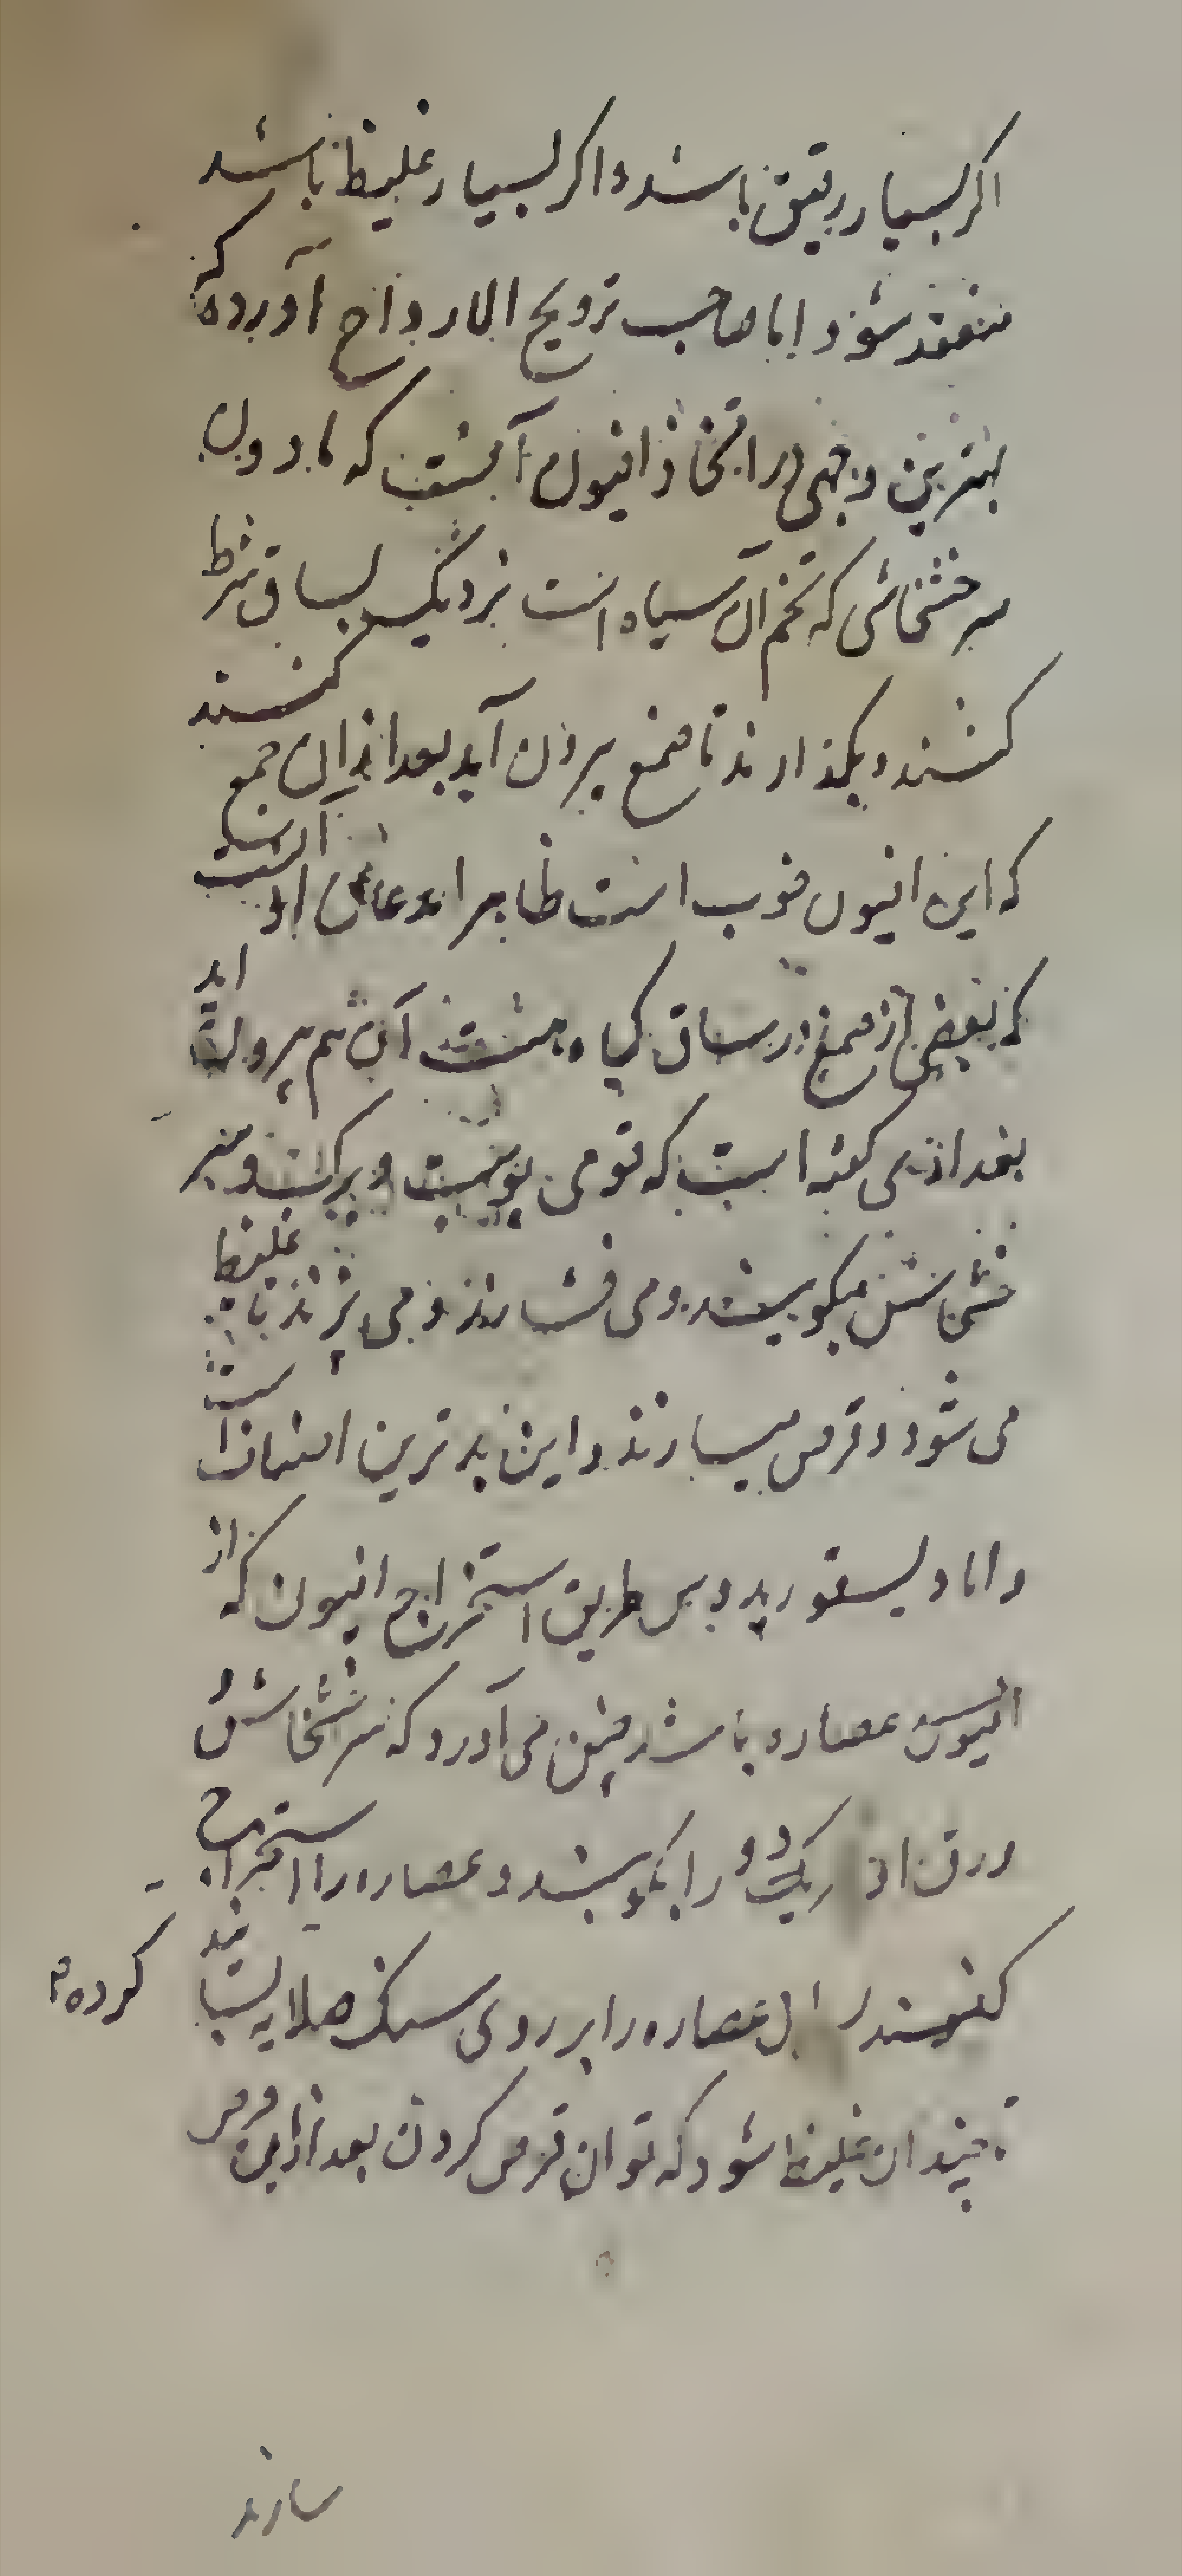 اگر بسیار رقیق باشد و اگر بسیار غلیظ باشد
منعقد شود و اما صاحب ترویح الارواح آورده که
بهترین وجهی در اتخاذ افیون آنست که مادون
سر خشخاشی که تخم آن سیاه است نزدیک بساق شرط
کنند و بگذارند تا صمغ بیرون آید بعد از آن جمع کنند
که این افیون خوب است ظاهرا مدعای او آنست
که بعضی از صمغ در ساق گیاه هست آن هم بیرون آید
بعد از می گفته است که قومی پوست و برگ و سر
خشخاش میکوبند و می فشارند و می پزند تا غلیظ
می شود و قرص میسازند و این بدترین است
و اما دیسقوریدوس طریق استخراج افیون که از
افیون عصاره باشد چنین می آورد که سر خشخاش
ورق از یک دو را بکوبند و عصاره را استخراج
کنند عصاره را بر روی سنگ صلایه بسایند
تا چندان غلیظ شود که توان قرص کردن بعد ازین قرص
کرده م
سازند